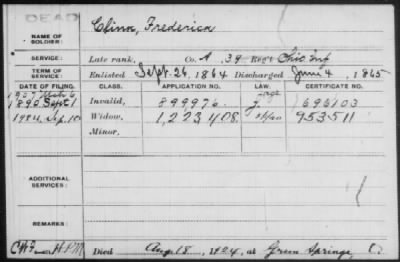 DEAD
NAME OF SOLDIER: Clink, Frederick
SERVICE: Late rank, Co. A, 39 Reg't Ohio Inf
TERM OF SERVICE: Enlisted Sept. 26, 1864 Discharged June 4, 1865
DATE OF FILING. CLASS. APPLICATION NO. LAW. CERTIFICATE NO.
1907
1890 Sept 1 Invalid, 899976 696103
1924, Sep. 10 Widow, 1,223,408 953511
Minor,
ADDITIONAL SERVICES:
REMARKS:
Died Aug. 18, 1924, at Green Springs, O.